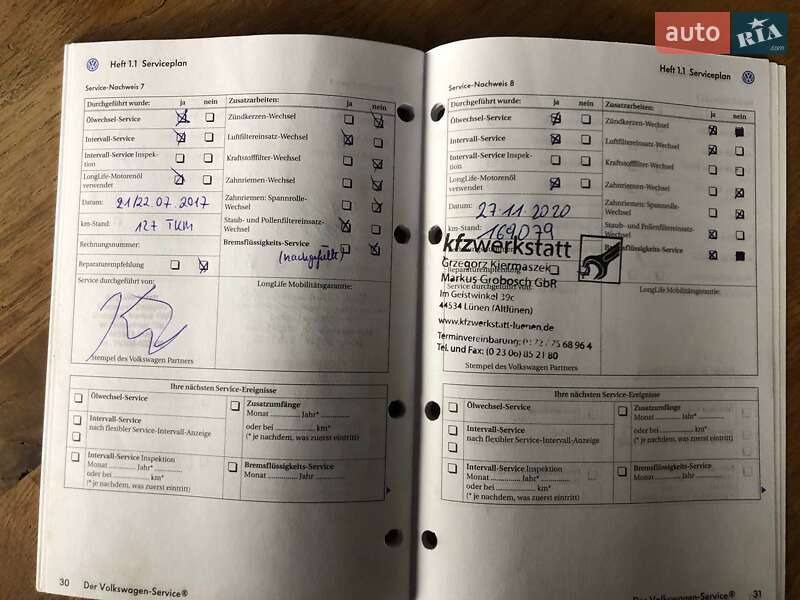 auto RIA.com
Heft 1.1 Serviceplan
Service-Nachweis 7
Durchgeführt wurde: ja nein Zusatzarbeiten: ja nein
Ölwechsel-Service
Zündkerzen-Wechsel
Intervall-Service
Luftfiltereinsatz-Wechsel
Intervall-Service Inspek-
tion
Kraftstofffilter-Wechsel
LongLife-Motorenöl
verwendet
Zahnriemen-Wechsel
Datum: 21/22.07.2017
Zahnriemen: Spannrolle-
Wechsel
km-Stand: 127 TKM
Staub- und Pollenfiltereinsatz-
Wechsel
Rechnungsnummer:
Bremsflüssigkeits-Service
(nachgefüllt)
Reparaturempfehlung
Service durchgeführt von:
LongLife Mobilitätsgarantie:
Stempel des Volkswagen Partners
Ihre nächsten Service-Ereignisse
Ölwechsel-Service
Intervall-Service
nach flexibler Service-Intervall-Anzeige
Intervall-Service Inspektion
Monat ............ Jahr* ............
oder bei ............ km*
(* je nachdem, was zuerst eintritt)
Zusatzumfänge
Monat ............ Jahr* ............
oder bei ............ km*
(* je nachdem, was zuerst eintritt)
Bremsflüssigkeits-Service
Monat ............ Jahr ............
30 Der Volkswagen-Service®
Heft 1.1 Serviceplan
Service-Nachweis 8
Durchgeführt wurde: ja nein Zusatzarbeiten: ja nein
Ölwechsel-Service
Zündkerzen-Wechsel
Intervall-Service
Luftfiltereinsatz-Wechsel
Intervall-Service Inspek-
tion
Kraftstofffilter-Wechsel
LongLife-Motorenöl
verwendet
Zahnriemen-Wechsel
Datum: 27.11.2020
Zahnriemen: Spannrolle-
Wechsel
km-Stand: 169079
Staub- und Pollenfiltereinsatz-
Wechsel
kfzwerkstatt
Bremsflüssigkeits-Service
Grzegorz Kiermaszek
Reparaturempfehlung
Markus Grobosch GbR
Service durchgeführt von:
LongLife Mobilitätsgarantie:
Im Geistwinkel 39c
44534 Lünen (Altlünen)
www.kfzwerkstatt-luenen.de
Terminvereinbarung: 68 96 4
Tel. und Fax: (0 23 06) 85 21 80
Stempel des Volkswagen Partners
Ihre nächsten Service-Ereignisse
Ölwechsel-Service
Intervall-Service
nach flexibler Service-Intervall-Anzeige
Intervall-Service Inspektion
Monat ............ Jahr* ............
oder bei ............ km*
(* je nachdem, was zuerst eintritt)
Zusatzumfänge
Monat ............ Jahr* ............
oder bei ............ km*
(* je nachdem, was zuerst eintritt)
Bremsflüssigkeits-Service
Monat ............ Jahr ............
Der Volkswagen-Service® 31